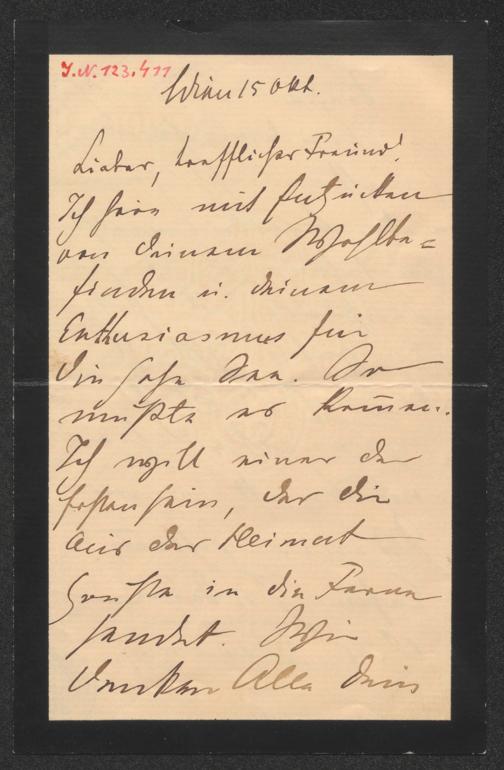 J.N. 123.411
Wien 15 Okt.
Lieber, trefflicher Freund!
Ich höre mit Entzücken
von deinem Wohlbe=
finden u. deinem
Enthusiasmus für
die hohe See. So
mußte es kom̅en.
Ich will einer der
Ersten sein, der dir
aus der Heimat
Grüße in die Ferne
sendet. Wir
denken Alle dein